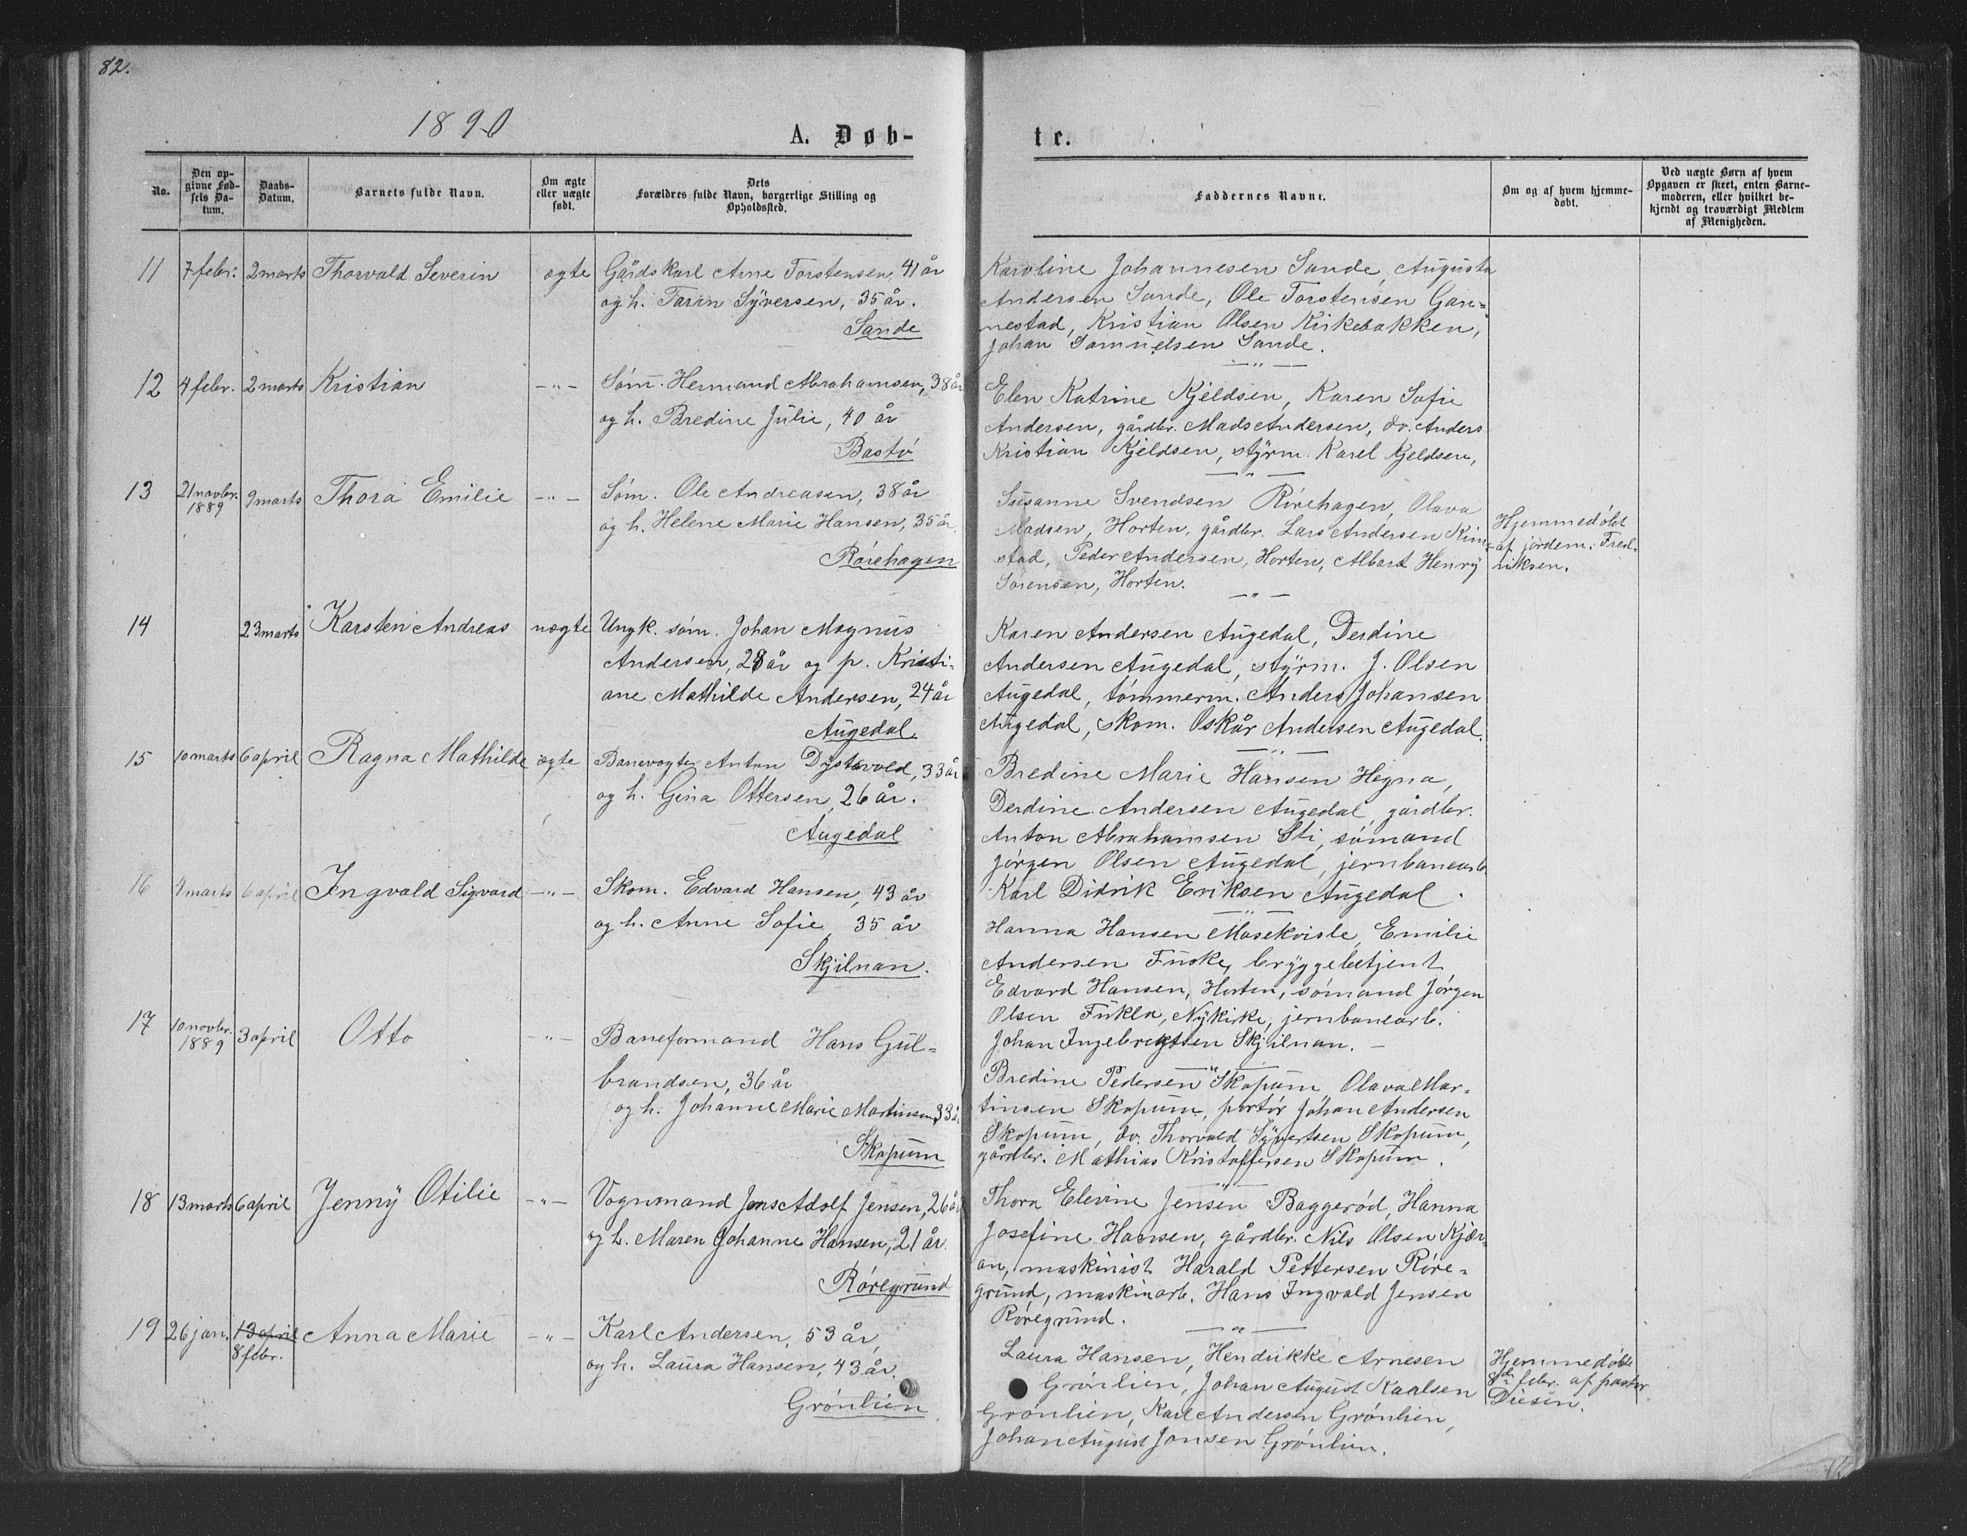 82.
1890
A. Døb-
te.
No.
Den op-
givne Fød-
sels Da-
tum.
Daabs-
Datum.
Barnets fulde Navn.
Om ægte
eller uægte
født.
Dets
Forældres fulde Navn, borgerlige Stilling og
Opholdssted.
Faddernes Navne.
Om og af hvem hjemme-
døbt.
Ved uægte Børn af hvem
Opgaven er skeet, enten Barne-
moderen, eller hvilket be-
kjendt og troværdigt Medlem
af Menigheden.
11 7 febr. 2 marts Thorvald Severin ægte Gårdskarl Arne Torstensen, 41 år
og h. Taran Syversen, 35 år.
Sande
Karoline Johannesen Sande, Augusta
Andersen Sande, Ole Torstensen Gan-
nestad, Kristian Olsen Kirkebakken,
Johan Samuelsen Sande.
12 4 febr. 2 marts Kristian —"— Søm. Hermand Abrahamsen, 38 år
og h. Bredine Julie, 40 år
Bastø
Elen Katrine Kjeldsen, Karen Sofie
Andersen, gårdbr. Mads Andersen, do. Anders
Kristian Kjeldsen, styrm. Karel Kjeldsen,
13 21 novbr. 1889 9 marts Thora Emilie —"— Søm. Ole Andreasen, 38 år
og h. Helene Marie Hansen, 35 år.
Rørehagen
Susanne Svendsen Rørehagen, Olava
Madsen, Horten, gårdbr. Lars Andersen Kim-
stad, Peder Andersen, Horten, Albart Henry
Sørensen, Horten.
Hjemmedøbt
af jordem. Fred-
riksen.
14 23 marts Karsten Andreas uægte Ungk. søm. Johan Magnus
Andersen, 28 år og p. Kristi-
ane Mathilde Andersen, 24 år
Augedal.
Karen Andersen Augedal, Derdine
Andersen Augedal, styrm. J. Olsen
Augedal, tømmerm. Anders Johansen
Augedal, skom. Oskår Andersen Augedal.
15 10 marts 6 april Ragna Mathilde ægte Banevogter Anton Dystevold, 33 år
og h. Gina Ottersen, 26 år.
Augedal
Bredine Marie Hansen Hegna,
Derdine Andersen Augedal, gårdbr.
Anton Abrahamsen Sti, sømand
Jørgen Olsen Augedal, jernbanearb.
Karl Didrik Eriksen Augedal.
16 4 marts 6 april Ingvald Sigvard —"— Skom. Edvard Hansen, 43 år
og h. Anne Sofie, 35 år
Skjilnan.
Hanna Hansen Masekvisle, Emilie
Andersen Fuske, bryggebetjent
Edvard Hansen, Horten, sømand Jørgen
Olsen Fukla, Nykirke, jernbanearb.
Johan Ingebregtsen Skjilnan.
17 10 novbr. 1889 3 april Otto —"— Baneformand Hans Gul-
brandsen, 36 år
og h. Johanne Marie Martinsen, 33 å.
Skopum
Bredine Pedersen Skopum, Olava Mar-
tinsen Skopum, portør Johan Andersen
Skopum, do. Thorvald Syvertsen Skopum,
gårdbr. Mathias Kristoffersen Skopum.
18 13 marts 6 april Jenny Otilie —"— Vognmand Jens Adolf Jensen, 26 år
og h. Maren Johanne Hansen, 21 år.
Røregrund
Thora Elevine Jensen Baggerød, Hanna
Josefine Hansen, gårdbr. Nils Olsen Kjær-
an, maskinist Harald Pettersen Røre-
grund, maskinarb. Hans Ingvald Jensen
Røregrund.
19 26 jan. 13 april 8 febr. Anna Marie —"— Karl Andersen, 53 år,
og h. Laura Hansen, 43 år.
Grønlien
Laura Hansen, Hendrikke Arnesen
Grønlien, Johan August Karlsen
Grønlien, Karl Andersen Grønlien,
Johan August Jonsen Grønlien.
Hjemmedøbt
8de febr. af pastor
Diesen.